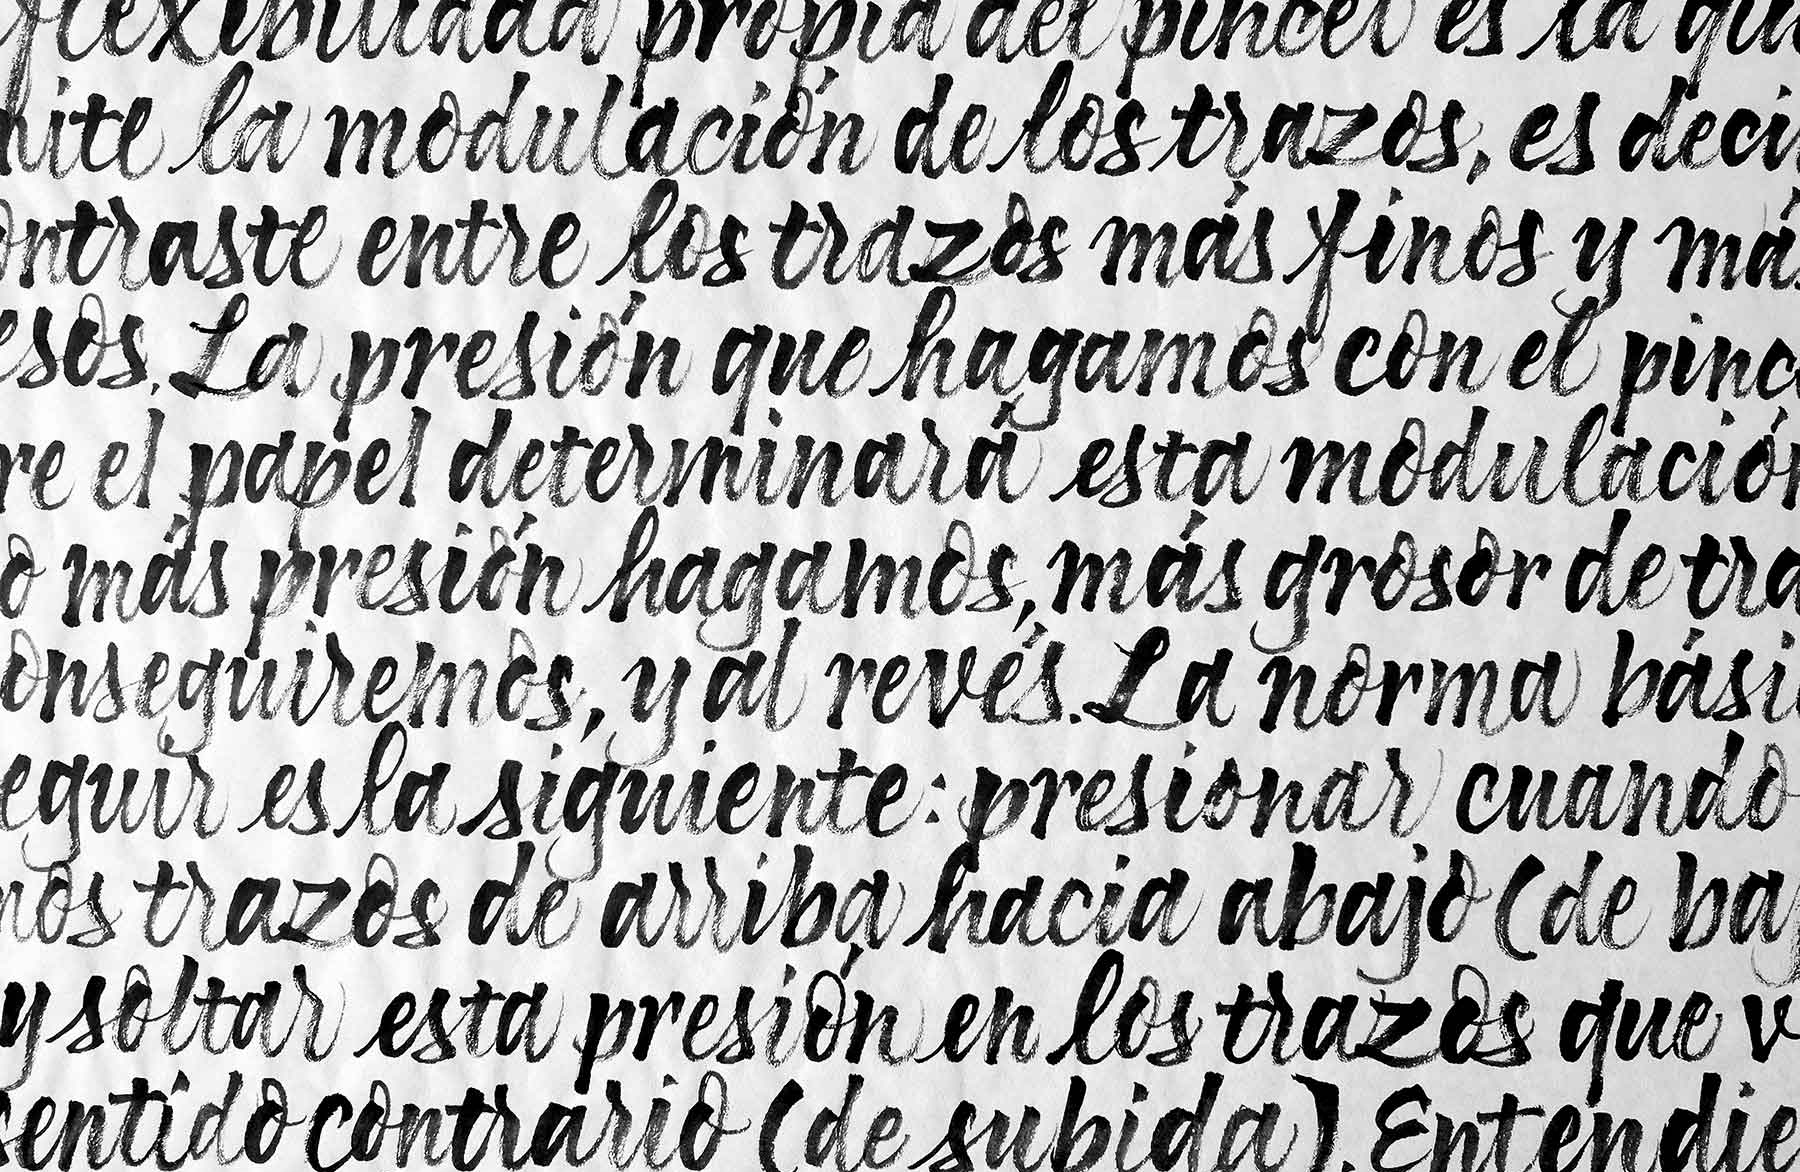 flexibilidad propia del pincel es la qu
mite la modulación de los trazos, es deci
ontraste entre los trazos más finos y más
esos. La presión que hagamos con el pince
re el papel determinará esta modulación
o más presión hagamos, más grosor de tra
onseguiremos, y al revés. La norma bási
eguir es la siguiente: presionar cuando
mos trazos de arriba hacia abajo (de baj
y soltar esta presión en los trazos que v
sentido contrario (de subida). Entendie